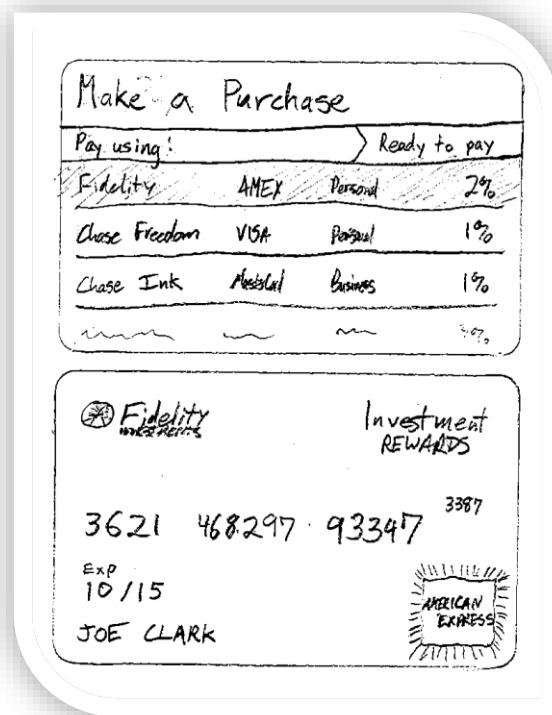 Make a Purchase
Pay using: Ready to pay
Fidelity AMEX Personal 2%
Chase Freedom VISA Personal 1%
Chase Ink MasterCard Business 1%
Fidelity Investment
INVESTMENTS REWARDS
3387
3621 468297 93347
Exp
10/15
AMERICAN
EXPRESS
JOE CLARK